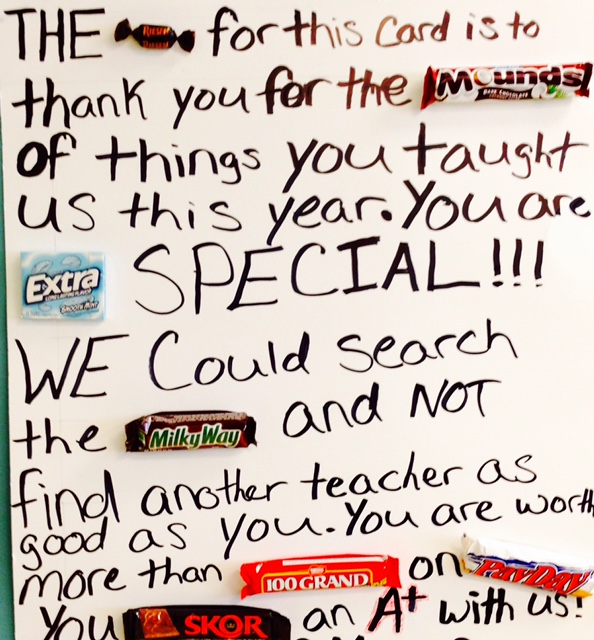 THE Rolo for this Card is to
thank you for the Mounds DARK CHOCOLATE
of things you taught
us this year. You are
Extra LONG LASTING FLAVOR SMOOTH MINT SPECIAL!!!
WE Could search
the Milky Way and NOT
find another teacher as
good as you. You are worth
more than 100 GRAND on PAYDAY
You SKOR an A+ with us!